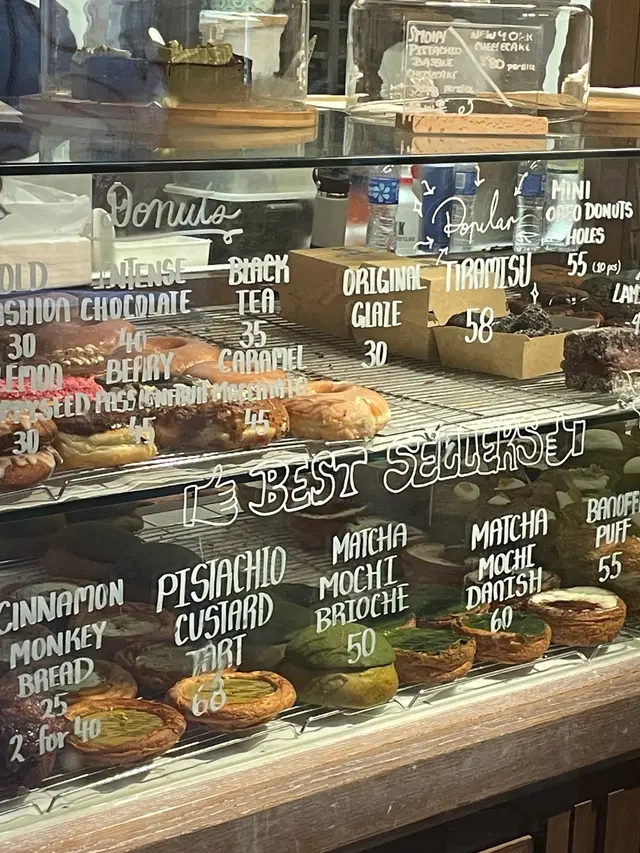 SMOKY
PISTACHIO
BASQUE
CHEESECAKE
NEW YORK
CHEESECAKE
$80 per slice
Donuts
Popular
MINI
OREO DONUTS
HOLES
55 (10 pcs)
OLD
FASHION
30
INTENSE
CHOCOLATE
40
BLACK
TEA
35
ORIGINAL
GLAZE
30
TIRAMISU
58
LEMON
30
BERRY
PASSIONFRUIT
45
CARAMEL
MACCHIATO
45
BEST SELLERS
CINNAMON
MONKEY
BREAD
25
2 for 40
PISTACHIO
CUSTARD
TART
68
MATCHA
MOCHI
BRIOCHE
50
MATCHA
MOCHI
DANISH
60
BANOFF
PUFF
55